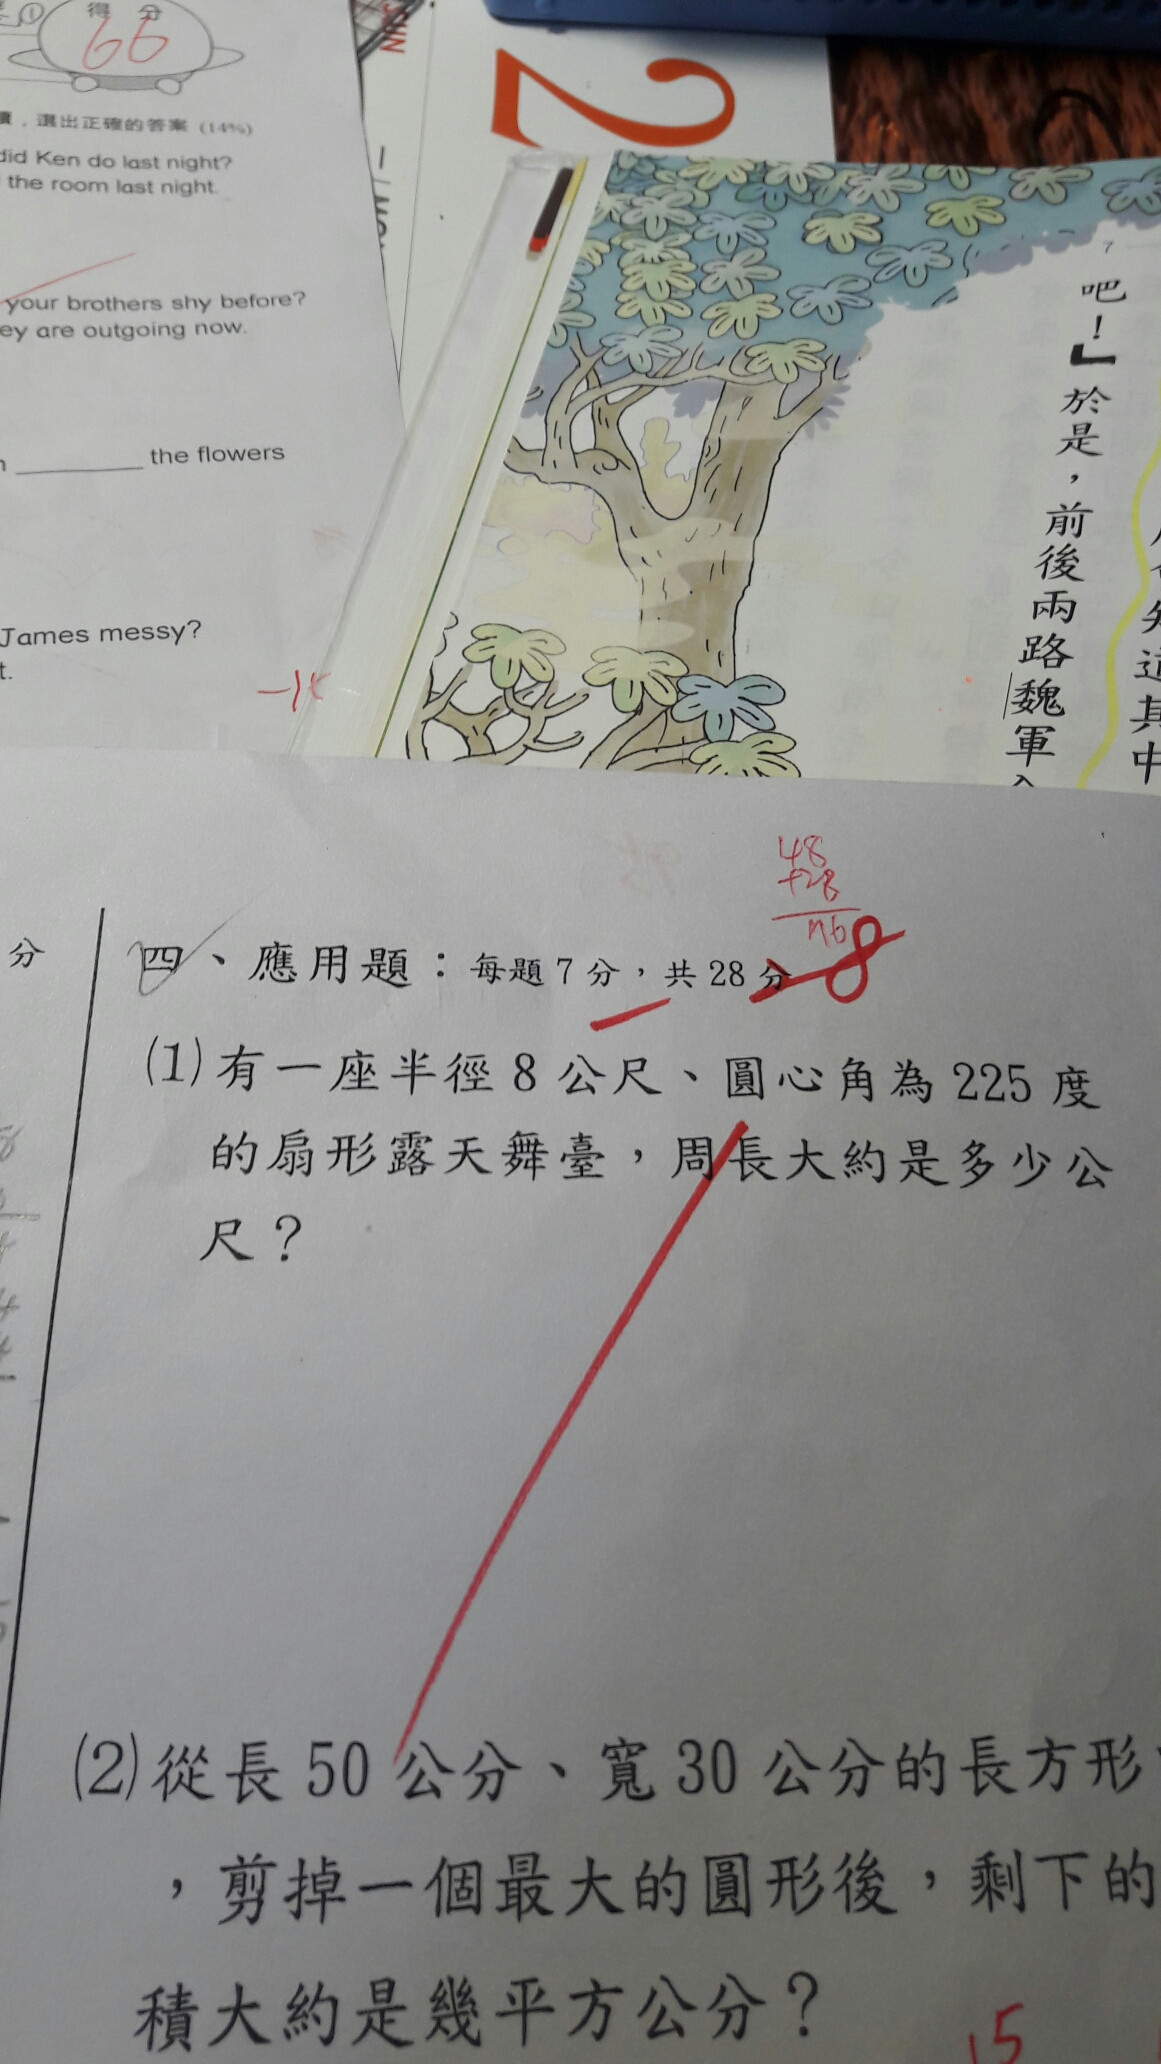 得分
66
,選出正確的答案 (14%)
did Ken do last night?
the room last night.
your brothers shy before?
ey are outgoing now.
the flowers
James messy?
t.
2
7
吧!」於是,前後兩路魏軍
知道其中
48
+28
76
分
四、應用題:每題 7 分,共 28 分
-8
(1)有一座半徑 8 公尺、圓心角為 225 度
的扇形露天舞臺,周長大約是多少公
尺?
(2)從長 50 公分、寬 30 公分的長方形
,剪掉一個最大的圓形後,剩下的
積大約是幾平方公分?
15